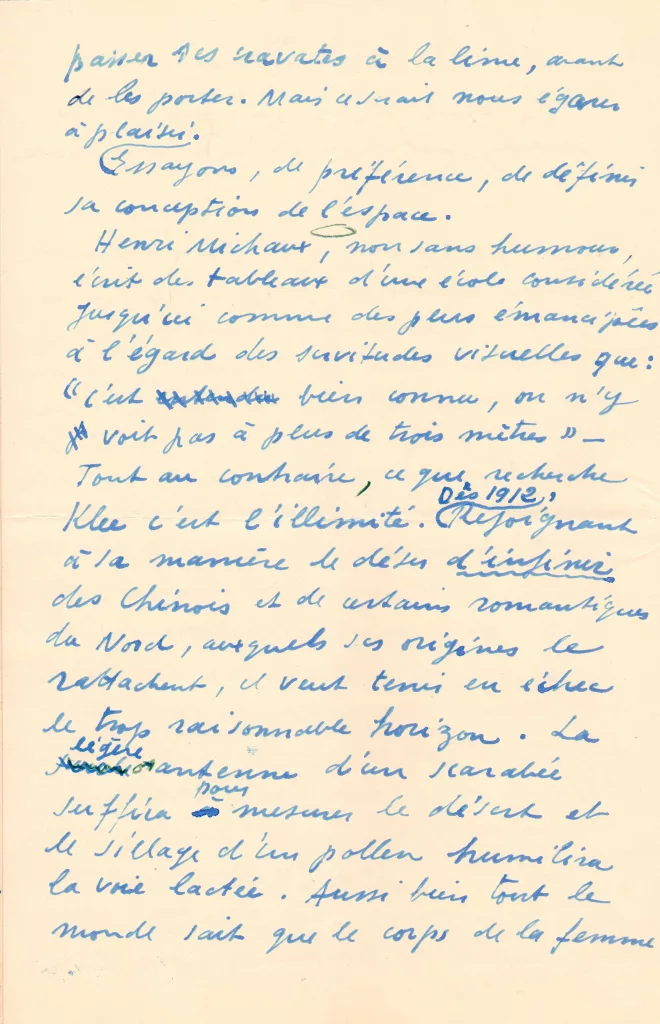 passer ses cravates à la lime, avant
de les porter. Mais ce serait nous égarer
à plaisir.
Essayons, de préférence, de définir
sa conception de l'espace.
Henri Michaux, non sans humour,
écrit des tableaux d'une école considérée
jusqu'ici comme des plus émancipées
à l'égard des servitudes visuelles que :
"c'est bien connu, on n'y
voit pas à plus de trois mètres" –
Tout au contraire, ce que recherche
Dès 1912,
Klee c'est l'illimité. Rejoignant
à sa manière le désir d'infini
des Chinois et de certains romantiques
du Nord, auxquels ses origines le
rattachent, il veut tenir en échec
le trop raisonnable horizon. La
légère
antenne d'un scarabée
pour
suffira mesurer le désert et
le sillage d'un pollen humilira
la voie lactée. Aussi bien tout le
monde sait que le corps de la femme